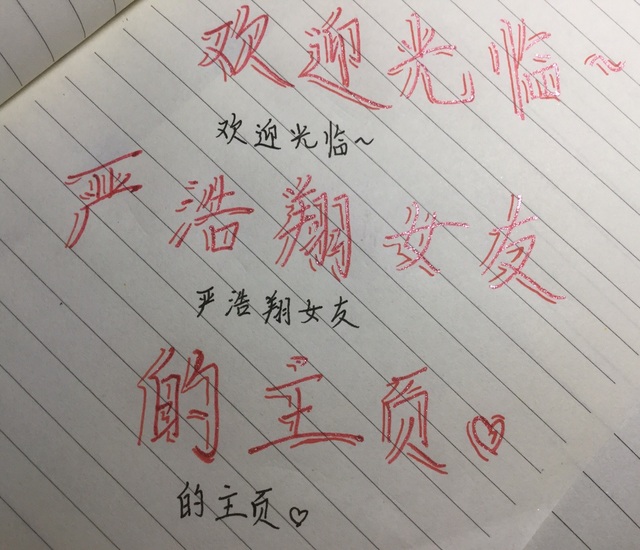 欢迎光临~
欢迎光临~
严浩翔女友
严浩翔女友
的主页♡
的主页♡